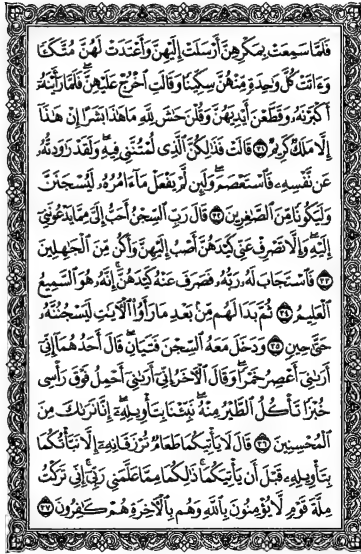 فَلَمَّا سَمِعَتْ بِمَكْرِهِنَّ أَرْسَلَتْ إِلَيْهِنَّ وَأَعْتَدَتْ لَهُنَّ مُتَّكَـًٔا
وَءَاتَتْ كُلَّ وَٰحِدَةٍ مِّنْهُنَّ سِكِّينًا وَقَالَتِ ٱخْرُجْ عَلَيْهِنَّ ۖ فَلَمَّا رَأَيْنَهُۥٓ
أَكْبَرْنَهُۥ وَقَطَّعْنَ أَيْدِيَهُنَّ وَقُلْنَ حَٰشَ لِلَّهِ مَا هَٰذَا بَشَرًا إِنْ هَٰذَآ
إِلَّا مَلَكٌ كَرِيمٌ ۝٣١ قَالَتْ فَذَٰلِكُنَّ ٱلَّذِى لُمْتُنَّنِى فِيهِ ۖ وَلَقَدْ رَٰوَدتُّهُۥ
عَن نَّفْسِهِۦ فَٱسْتَعْصَمَ ۖ وَلَئِن لَّمْ يَفْعَلْ مَآ ءَامُرُهُۥ لَيُسْجَنَنَّ
وَلَيَكُونًا مِّنَ ٱلصَّٰغِرِينَ ۝٣٢ قَالَ رَبِّ ٱلسِّجْنُ أَحَبُّ إِلَىَّ مِمَّا يَدْعُونَنِىٓ
إِلَيْهِ ۖ وَإِلَّا تَصْرِفْ عَنِّى كَيْدَهُنَّ أَصْبُ إِلَيْهِنَّ وَأَكُن مِّنَ ٱلْجَٰهِلِينَ
۝٣٣ فَٱسْتَجَابَ لَهُۥ رَبُّهُۥ فَصَرَفَ عَنْهُ كَيْدَهُنَّ ۚ إِنَّهُۥ هُوَ ٱلسَّمِيعُ
ٱلْعَلِيمُ ۝٣٤ ثُمَّ بَدَا لَهُم مِّنۢ بَعْدِ مَا رَأَوُا۟ ٱلْءَايَٰتِ لَيَسْجُنُنَّهُۥ
حَتَّىٰ حِينٍ ۝٣٥ وَدَخَلَ مَعَهُ ٱلسِّجْنَ فَتَيَانِ ۖ قَالَ أَحَدُهُمَآ إِنِّىٓ
أَرَىٰنِىٓ أَعْصِرُ خَمْرًا ۖ وَقَالَ ٱلْءَاخَرُ إِنِّىٓ أَرَىٰنِىٓ أَحْمِلُ فَوْقَ رَأْسِى
خُبْزًا تَأْكُلُ ٱلطَّيْرُ مِنْهُ ۖ نَبِّئْنَا بِتَأْوِيلِهِۦٓ ۖ إِنَّا نَرَىٰكَ مِنَ
ٱلْمُحْسِنِينَ ۝٣٦ قَالَ لَا يَأْتِيكُمَا طَعَامٌ تُرْزَقَانِهِۦٓ إِلَّا نَبَّأْتُكُمَا
بِتَأْوِيلِهِۦ قَبْلَ أَن يَأْتِيَكُمَا ۚ ذَٰلِكُمَا مِمَّا عَلَّمَنِى رَبِّىٓ ۚ إِنِّى تَرَكْتُ
مِلَّةَ قَوْمٍ لَّا يُؤْمِنُونَ بِٱللَّهِ وَهُم بِٱلْءَاخِرَةِ هُمْ كَٰفِرُونَ ۝٣٧